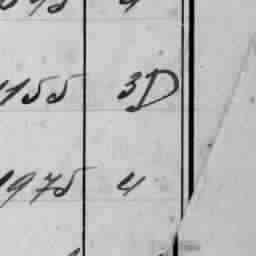 1155 3D
1975 4